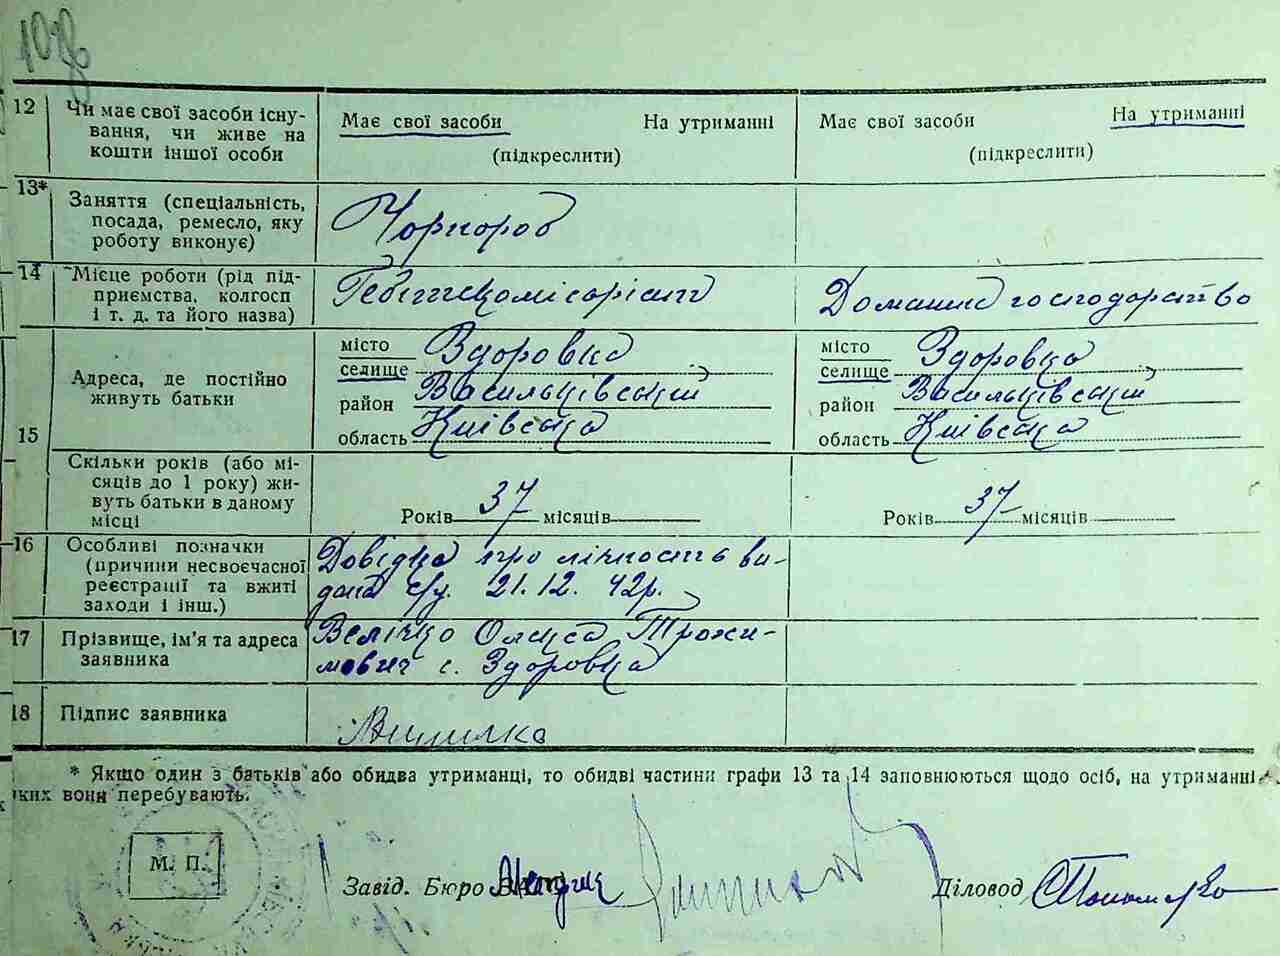 12 Чи має свої засоби існу-
вання, чи живе на
кошти іншої особи
Має свої засоби На утриманні
(підкреслити)
Має свої засоби На утриманні
(підкреслити)
13* Заняття (спеціальність,
посада, ремесло, яку
роботу виконує)
Чорнороб
14 Місце роботи (рід під-
приємства, колгосп
і т. д. та його назва)
Гебітскомісаріат
Домашнє господарство
15 Адреса, де постійно
живуть батьки
місто
селище Здоровка
район Васильківський
область Київська
місто
селище Здоровка
район Васильківський
область Київська
Скільки років (або мі-
сяців до 1 року) жи-
вуть батьки в даному
місці
Років 37 місяців
Років 37 місяців
16 Особливі позначки
(причини несвоєчасної
реєстрації та вжиті
заходи і інш.)
Довідка про лічность ви-
дана с/у. 21.12. 42р.
17 Прізвище, ім'я та адреса
заявника
Велічко Олекса Трохи-
мович с. Здоровка
18 Підпис заявника
* Якщо один з батьків або обидва утриманці, то обидві частини графи 13 та 14 заповнюються щодо осіб, на утриманні
яких вони перебувають.
М. П.
Завід. Бюро
Діловод